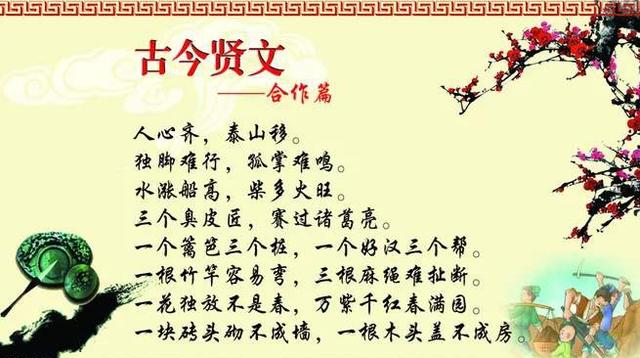 古今贤文
——合作篇
人心齐，泰山移。
独脚难行，孤掌难鸣。
水涨船高，柴多火旺。
三个臭皮匠，赛过诸葛亮。
一个篱笆三个桩，一个好汉三个帮。
一根竹竿容易弯，三根麻绳难扯断。
一花独放不是春，万紫千红春满园。
一块砖头砌不成墙，一根木头盖不成房。